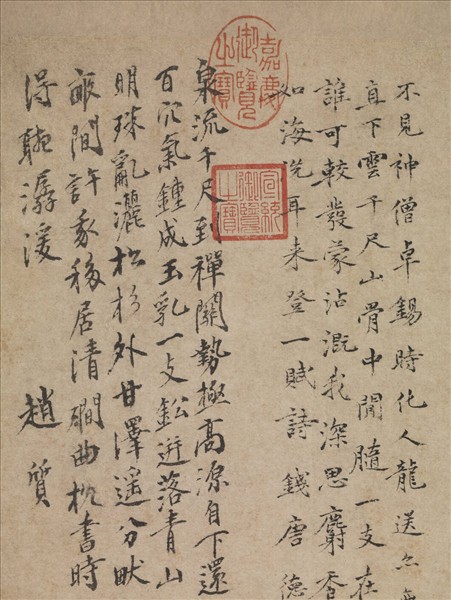 嘉慶御覽之寶
宣統御覽之寶
不見神僧卓錫時化人龍送
直下雲千尺山骨中聞髓一支在
誰可較發蒙沾溉我深思麝香
如海洗耳来登一賦詩錢唐德
泉流千尺到禪關勢極高源自下還
氣鍾成玉乳一支迸落青山
明珠亂灑松杉外甘澤遥分畎
畝間許我移居清磵曲枕書時
得聽潺湲 趙質